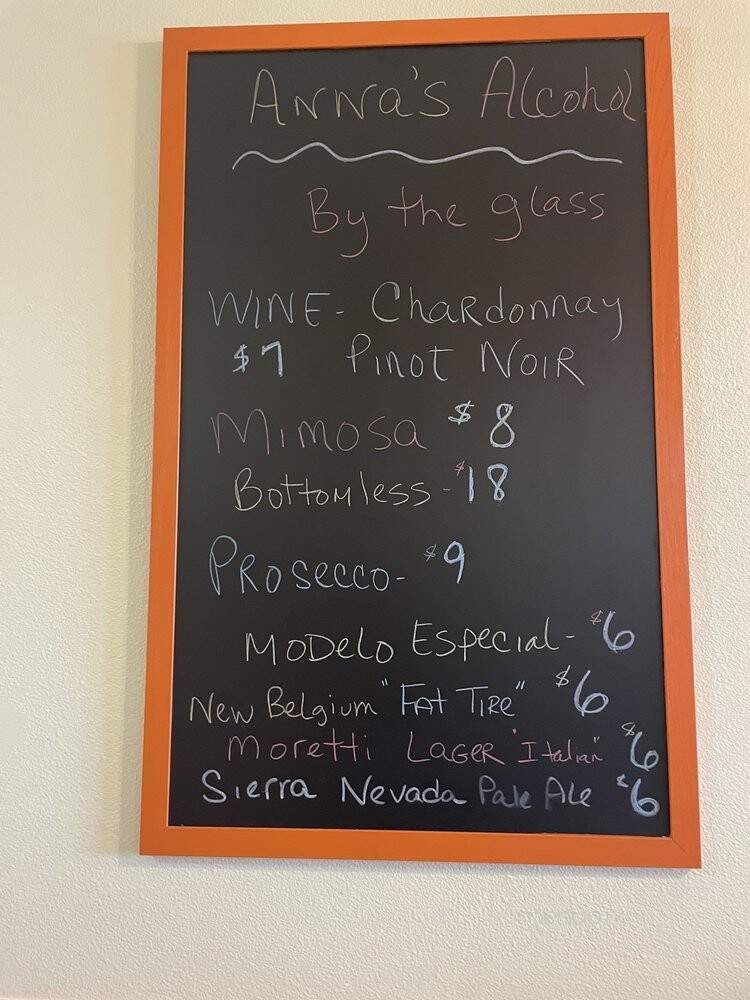 Anna's Alcohol
By the glass
WINE - Chardonnay
$7 Pinot Noir
Mimosa $8
Bottomless - $18
Prosecco - $9
Modelo Especial - $6
New Belgium "Fat Tire" $6
Moretti Lager "Italian" $6
Sierra Nevada Pale Ale $6